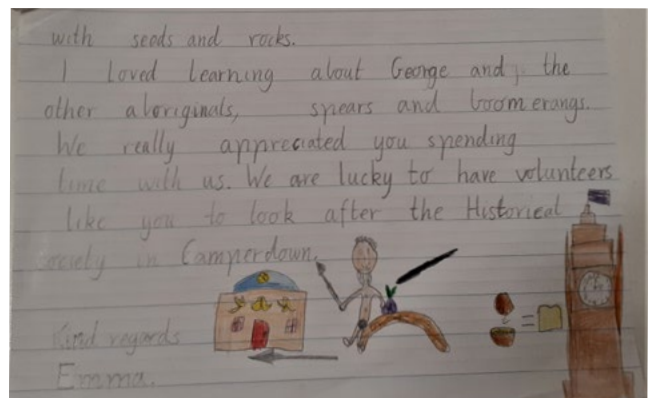 with seeds and rocks.
I Loved Learning about George and, the
other aboriginals, spears and boomerangs.
We really appreciated you spending
time with us. We are lucky to have volunteers
like you to look after the Historical
society in Camperdown.
Kind regards
Emma.